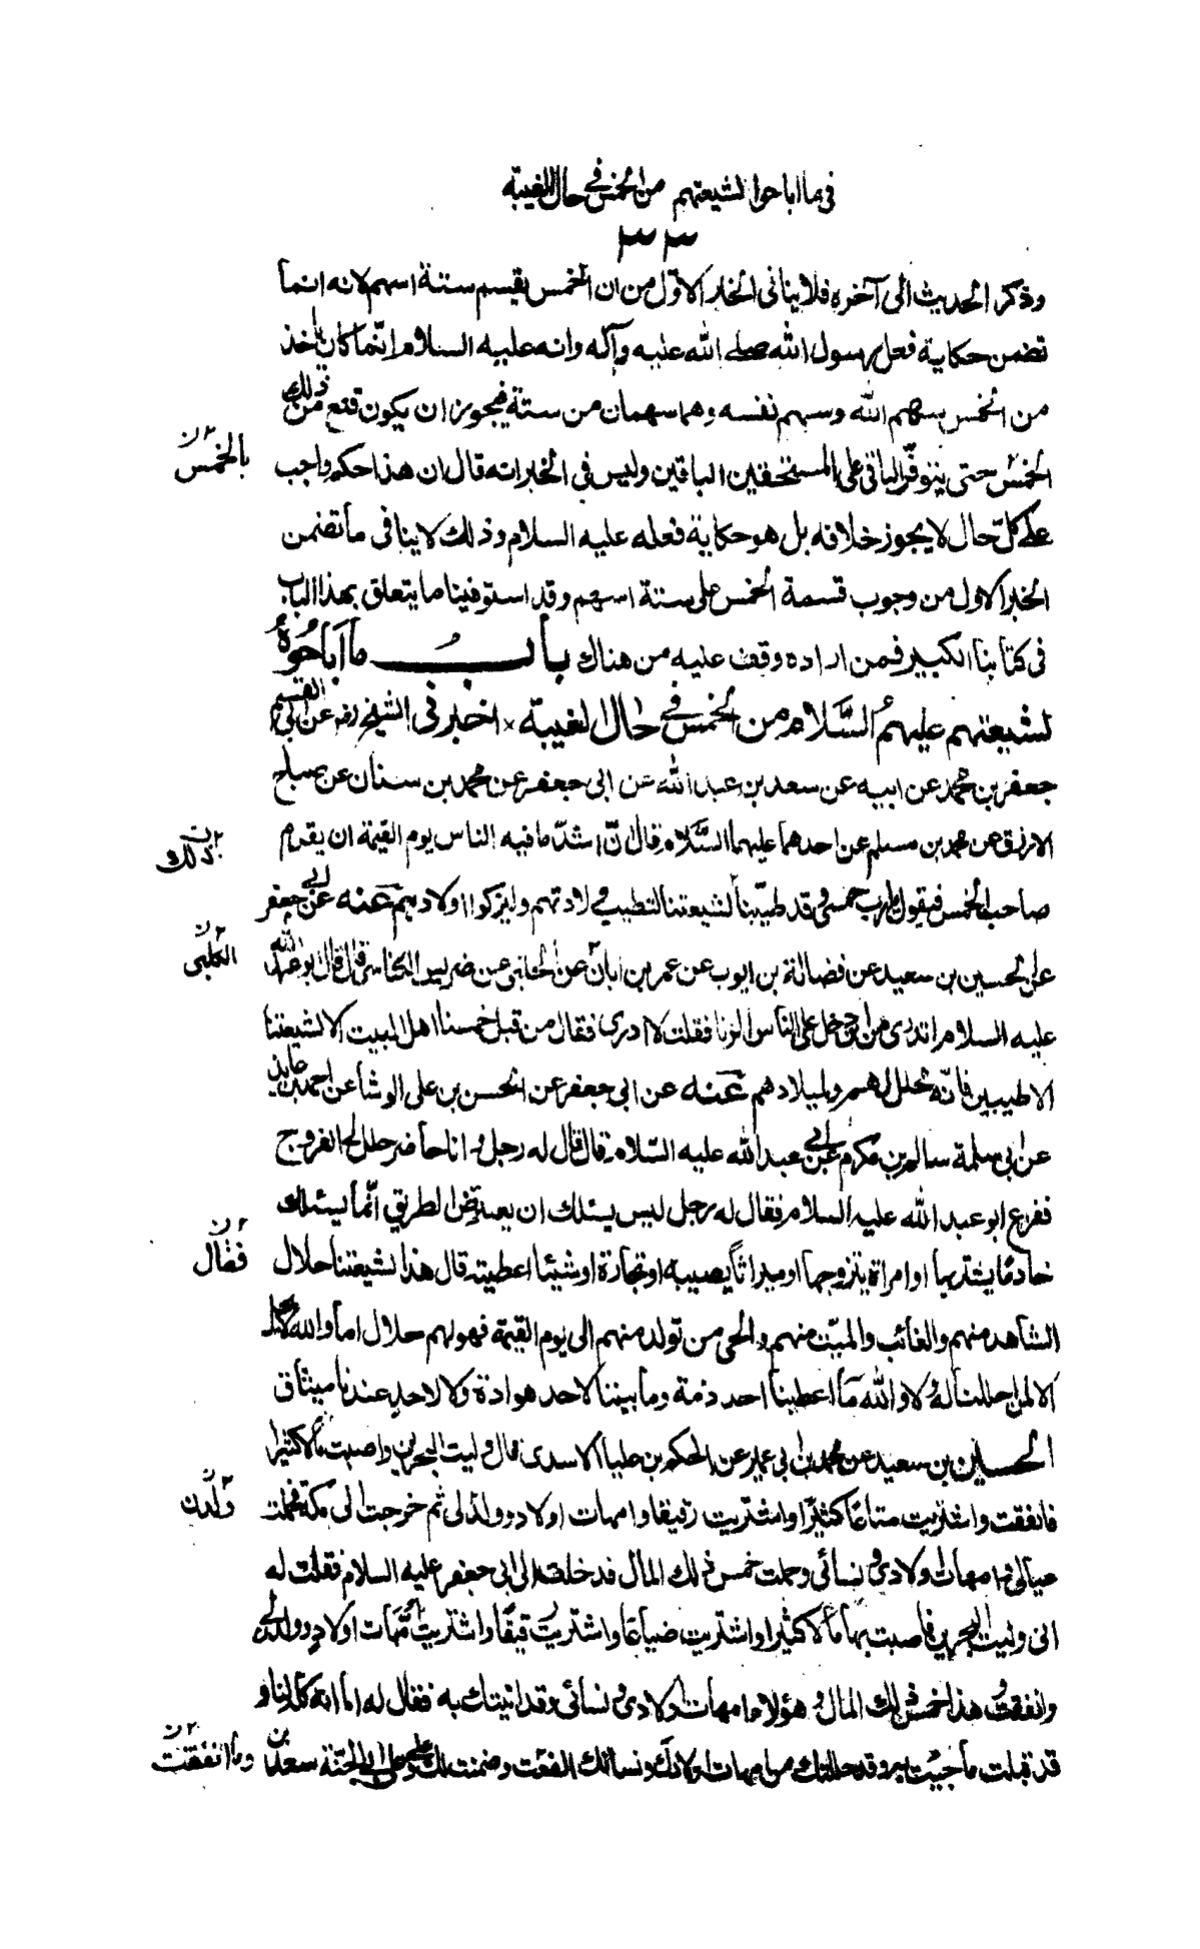 فی ما اباحوا لشیعتهم من الخمس فی حال الغیبة
٣٣
وذكر الحدیث الی آخره فلاینافی الخبر الاوّل من ان الخمس یقسم ستة اسهم لانه انما
تضمن حكایة فعل رسول الله صلی الله علیه وآله وانه علیه السلام انّما كان یاخذ
من الخمس سهم الله وسهم نفسه وهما سهمان من ستة فیجوز ان یكون قنع من ذلك
الخمس حتی یتوفّر الباقی علی المستحقین الباقین ولیس فی الخبر انه قال ان هذا حكم واجب
بالخمس ن
علی كلّ حال لا یجوز خلافه بل هو حكایة فعله علیه السلام وذلك لاینافی ما تضمن
الخبر الاول من وجوب قسمة الخمس علی ستة اسهم وقد استوفینا ما یتعلق بهذا الباب
فی كتابنا الكبیر فمن اراده وقف علیه من هناك بابُ ما اَباحُوهُ
لشیعتهم علیهمُ السَّلام من الخمس فی حال الغیبة اخبرنی الشیخ ره عن ابی القسم
جعفر بن محمد عن ابیه عن سعد بن عبد الله عن ابی جعفر عن محمد بن سنان عن صباح
الازرق عن محمد بن مسلم عن احدهما علیهما السَّلام قال نّ اشدّ ما فیه الناس یوم القیمة ان یقوم
ذلك ن
صاحب الخمس فیقول یارب خمسی وقد طیّبنا لشیعتنا لتطیب ولادتهم ولیزكوا اولادهم عنه عن ابی جعفر
علی الحسین بن سعید عن فضالة بن ایوب عن عمر بن ابان عن الحلبی عن ضریس الكناسی قال قال ابو عبد الله
الكلبی ن
علیه السلام اتدری من این دخل علی الناس الزنا فقلت لا ادری فقال من قبل خمسنا اهل البیت الا لشیعتنا
الاطیبین فانّه محلل لهم ولمیلادهم عنه عن ابی جعفر عن الحسن بن علی الوشا عن احمد بن عایذ
عن ابی سلمة سالم بن مكرم عن ابی عبد الله علیه السّلام قال قال له رجل وانا حاضر حلل لی الفروج
ففزع ابو عبد الله علیه السلام فقال له رجل لیس یسئلك ان یعترض الطریق انّما یسئلك
خادمًا یشتریها او امراة یتزوجها او میراثاً یصیبه او تجارة او شیئا اعطیته قال هذا لشیعتنا حلال
فقال ن
الشاهد منهم والغائب والمیّت منهم والحی من تولد منهم الی یوم القیمة فهو لهم حلال اما والله لا یحل
الا لمن احللنا لهُ لا والله ما اعطینا احد ذمة وما بیننا لاحد هوادة ولا لاحد عندنا میثاق
الحسین بن سعید عن محمد بن ابی عمیر عن الحكم بن علیا الاسدی قال ولیت البحرین واصبت مالا كثیرا
فانفقت واشتریت متاعًا كثیرًا واشتریت رقیقا وامهات اولاد وولد لی ثم خرجت الی مكة فحملت
وولدن ن
عیالی وامهات اولادی ونسائی وحملت خمس ذلك المال فدخلت الی ابی جعفر علیه السلام فقلت له
انی ولیت البحرین فاصبت بها مالا كثیرا واشتریت ضیاعًا واشتریت رقیقًا واشتریت اُمّهات اولاد وولد لی
وانفقت وهذا خمس ذلك المال وهؤلاء امهات اولادی ونسائی وقد اتیتك به فقال له اما انه كله لنا و
قد قبلت ما جئت به وقد حللتك من امهات اولادك ونسائك وما انفقت وضمنت لك علی وعلی ابی الجنة سعد بن
وما انفقت ن